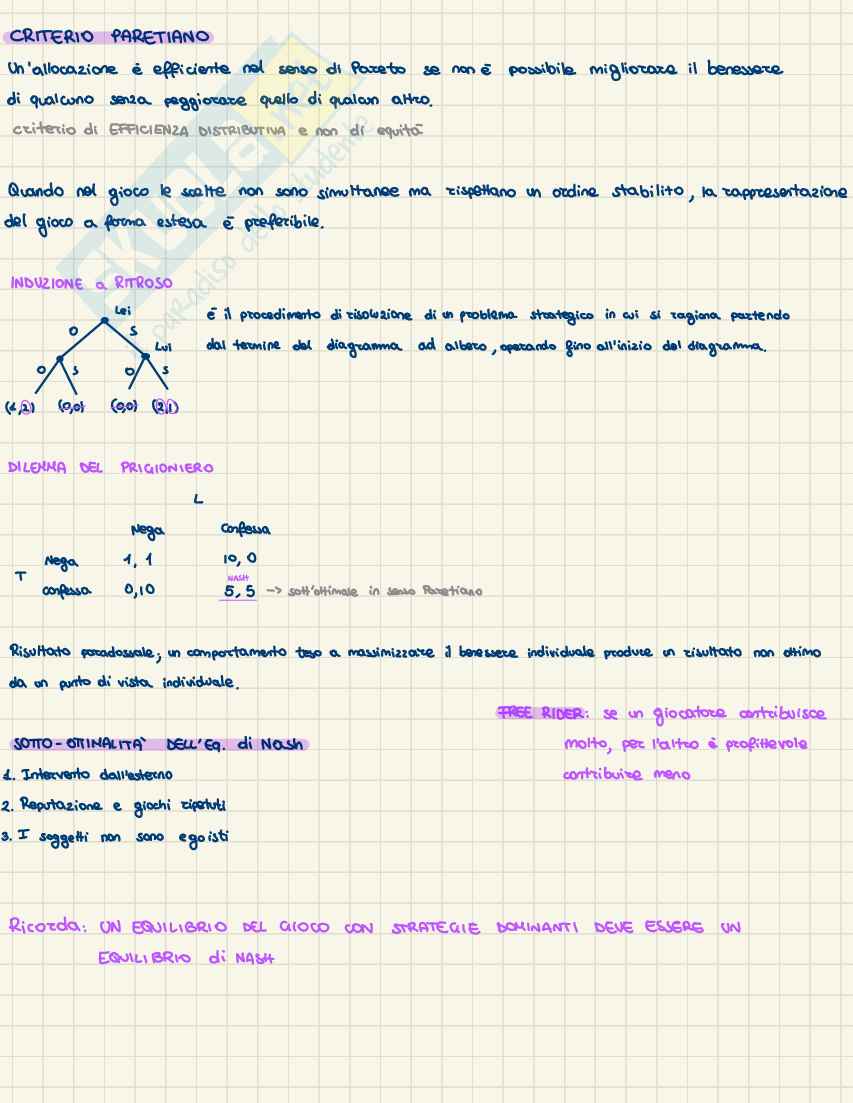 CRITERIO PARETIANO
Un'allocazione è efficiente nel senso di Pareto se non è possibile migliorare il benessere
di qualcuno senza peggiorare quello di qualcun altro.
criterio di EFFICIENZA DISTRIBUTIVA e non di equità
Quando nel gioco le scelte non sono simultanee ma rispettano un ordine stabilito, la rappresentazione
del gioco a forma estesa è preferibile.
INDUZIONE a RITROSO
Lei
è il procedimento di risoluzione di un problema strategico in cui si ragiona partendo
O S
Lui
dal termine del diagramma ad albero, operando fino all'inizio del diagramma.
O S O S
(1,2) (0,0) (0,0) (2,1)
DILEMMA DEL PRIGIONIERO
L
Nega Confessa
Nega 1, 1 10, 0
T
NASH
confessa 0,10 5, 5 -> sott'ottimale in senso Paretiano
Risultato paradossale; un comportamento teso a massimizzare il benessere individuale produce un risultato non ottimo
da un punto di vista individuale.
FREE RIDER: se un giocatore contribuisce
molto, per l'altro è profittevole
contribuire meno
SOTTO-OTTIMALITÀ DELL'Eq. di Nash
1. Intervento dall'esterno
2. Reputazione e giochi ripetuti
3. I soggetti non sono egoisti
Ricorda: UN EQUILIBRIO DEL GIOCO CON STRATEGIE DOMINANTI DEVE ESSERE UN
EQUILIBRIO di NASH
SKUOLA.net
il paradiso dello studente